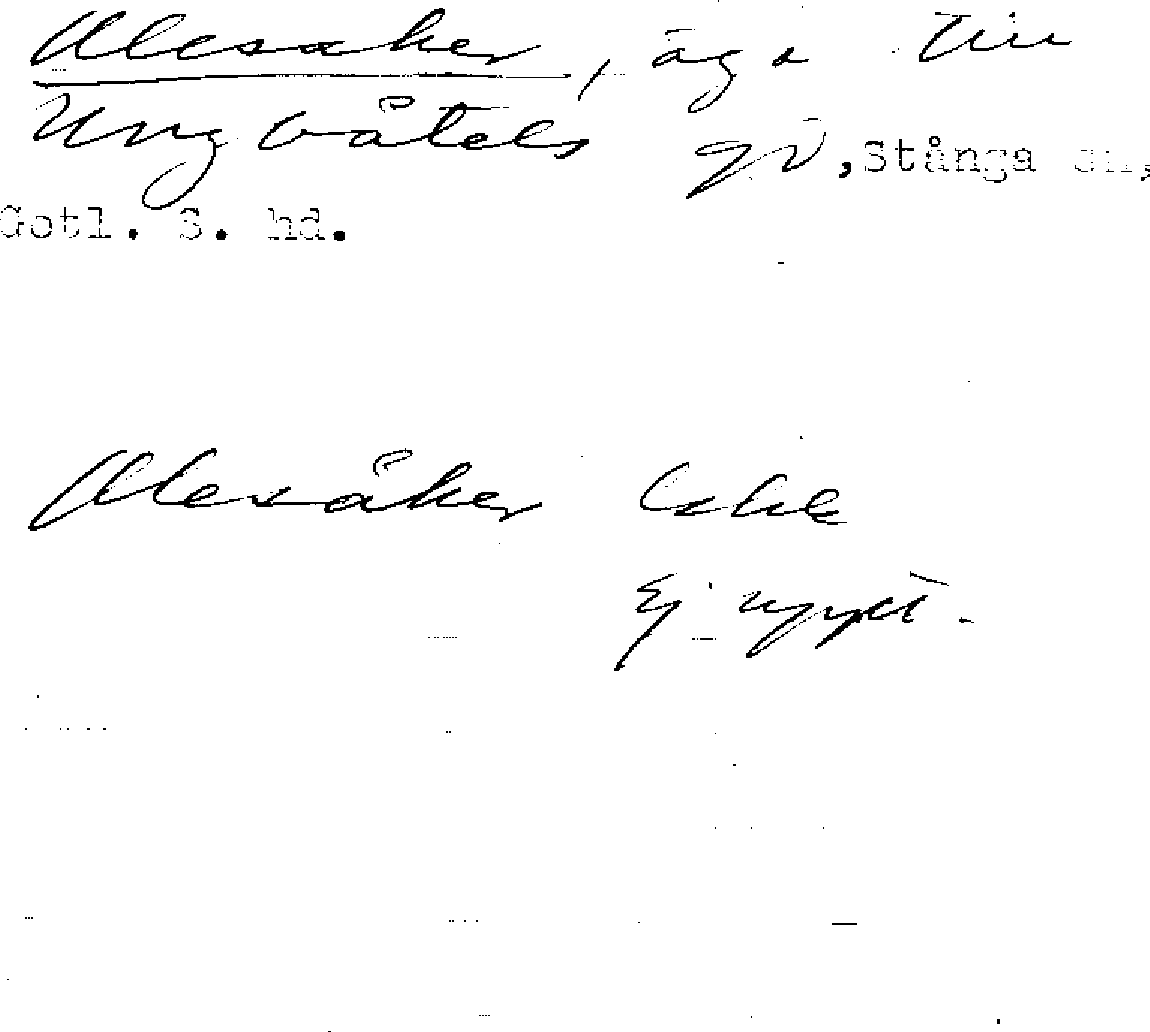 Alesaker, äga till
Ungbåtels gd, Stånga sn,
Gotl. S. hd.
Alesåker
Ej uppt.